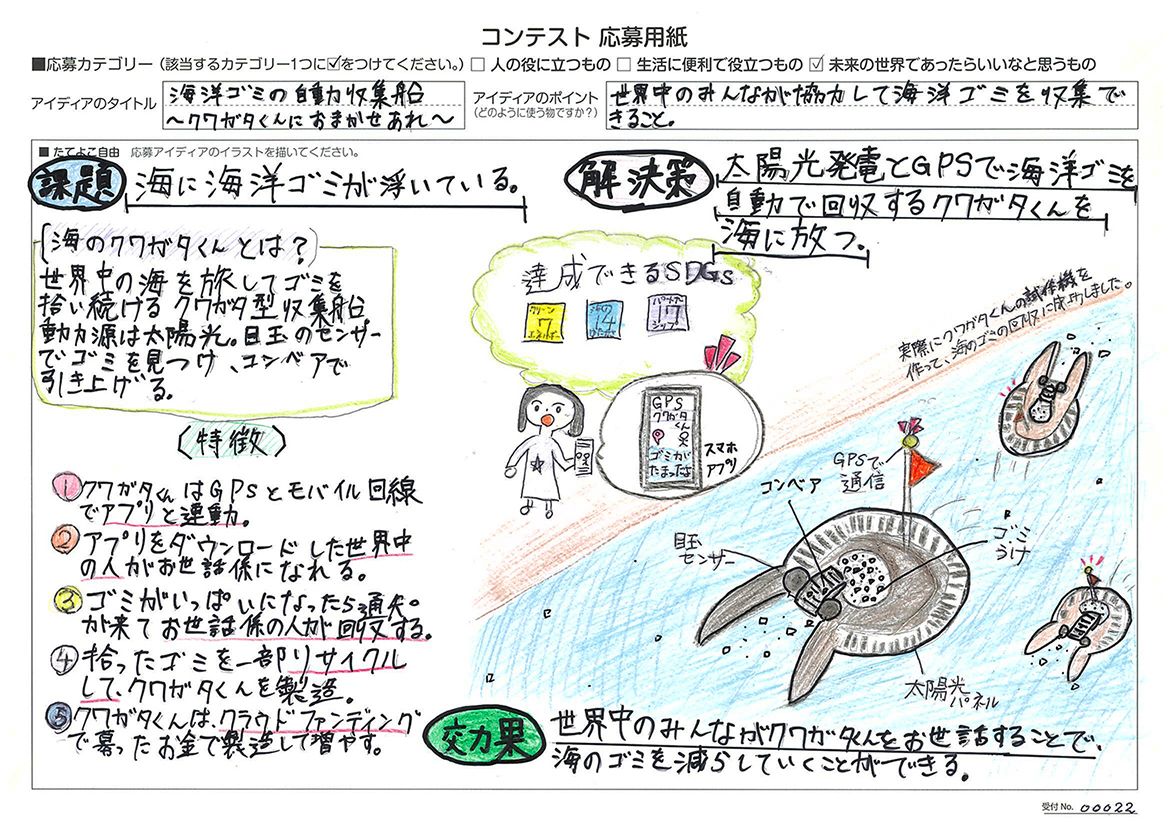 コンテスト 応募用紙
■応募カテゴリー（該当するカテゴリー1つに☑をつけてください。）□ 人の役に立つもの □ 生活に便利で役立つもの ☑ 未来の世界であったらいいなと思うもの
アイディアのタイトル
海洋ゴミの自動収集船
～クワガタくんにおまかせあれ～
アイディアのポイント
（どのように使う物ですか？）
世界中のみんなが協力して海洋ゴミを収集で
きること。
■ たてよこ自由 応募アイディアのイラストを描いてください。
課題
海に海洋ゴミが浮いている。
解決策
太陽光発電とGPSで海洋ゴミを
自動で回収するクワガタくんを
海に放つ。
海のクワガタくんとは？
世界中の海を旅してゴミを
拾い続けるクワガタ型収集船。
動力源は太陽光。目玉のセンサー
でゴミを見つけ、コンベアで
引き上げる。
達成できるSDGs
クリーン
7
エネルギー
海の
14
パートナー
17
シップ
実際にクワガタくんの試作機を
作って、海のゴミの回収に成功しました。
特徴
① クワガタくんはGPSとモバイル回線
でアプリと連動。
② アプリをダウンロードした世界中
の人がお世話係になれる。
③ ゴミがいっぱいになったら通知
が来てお世話係の人が回収する。
④ 拾ったゴミを一部リサイクル
して、クワガタくんを製造。
⑤ クワガタくんは、クラウドファンディング
で募ったお金で製造して増やす。
GPS
クワガタ
くん
ゴミが
たまったよ
スマホ
アプリ
GPSで
通信
コンベア
目玉
センサー
ゴミ
うけ
太陽光
パネル
効果
世界中のみんながクワガタくんをお世話することで、
海のゴミを減らしていくことができる。
受付 No. 00022